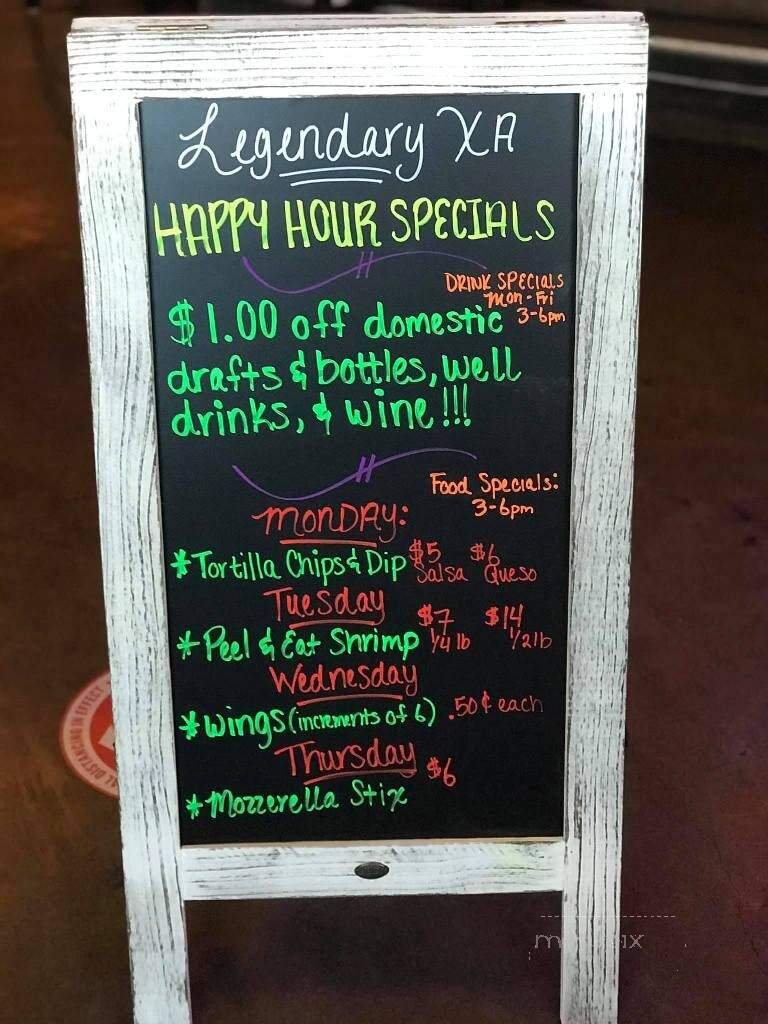 Legendary XA
HAPPY HOUR SPECIALS
H
DRINK SPECIALS
Mon - Fri
3-6pm
$1.00 off domestic
drafts & bottles, well
drinks, & wine!!!
H
Food Specials:
3-6pm
MONDAY:
*Tortilla Chips & Dip $5 Salsa $6 Queso
Tuesday
*Peel & Eat Shrimp $7 1/4 lb $14 1/2 lb
Wednesday
*wings (increments of 6) .50¢ each
Thursday
*Mozzerella Stix $6
DISTANCING IN EFFECT